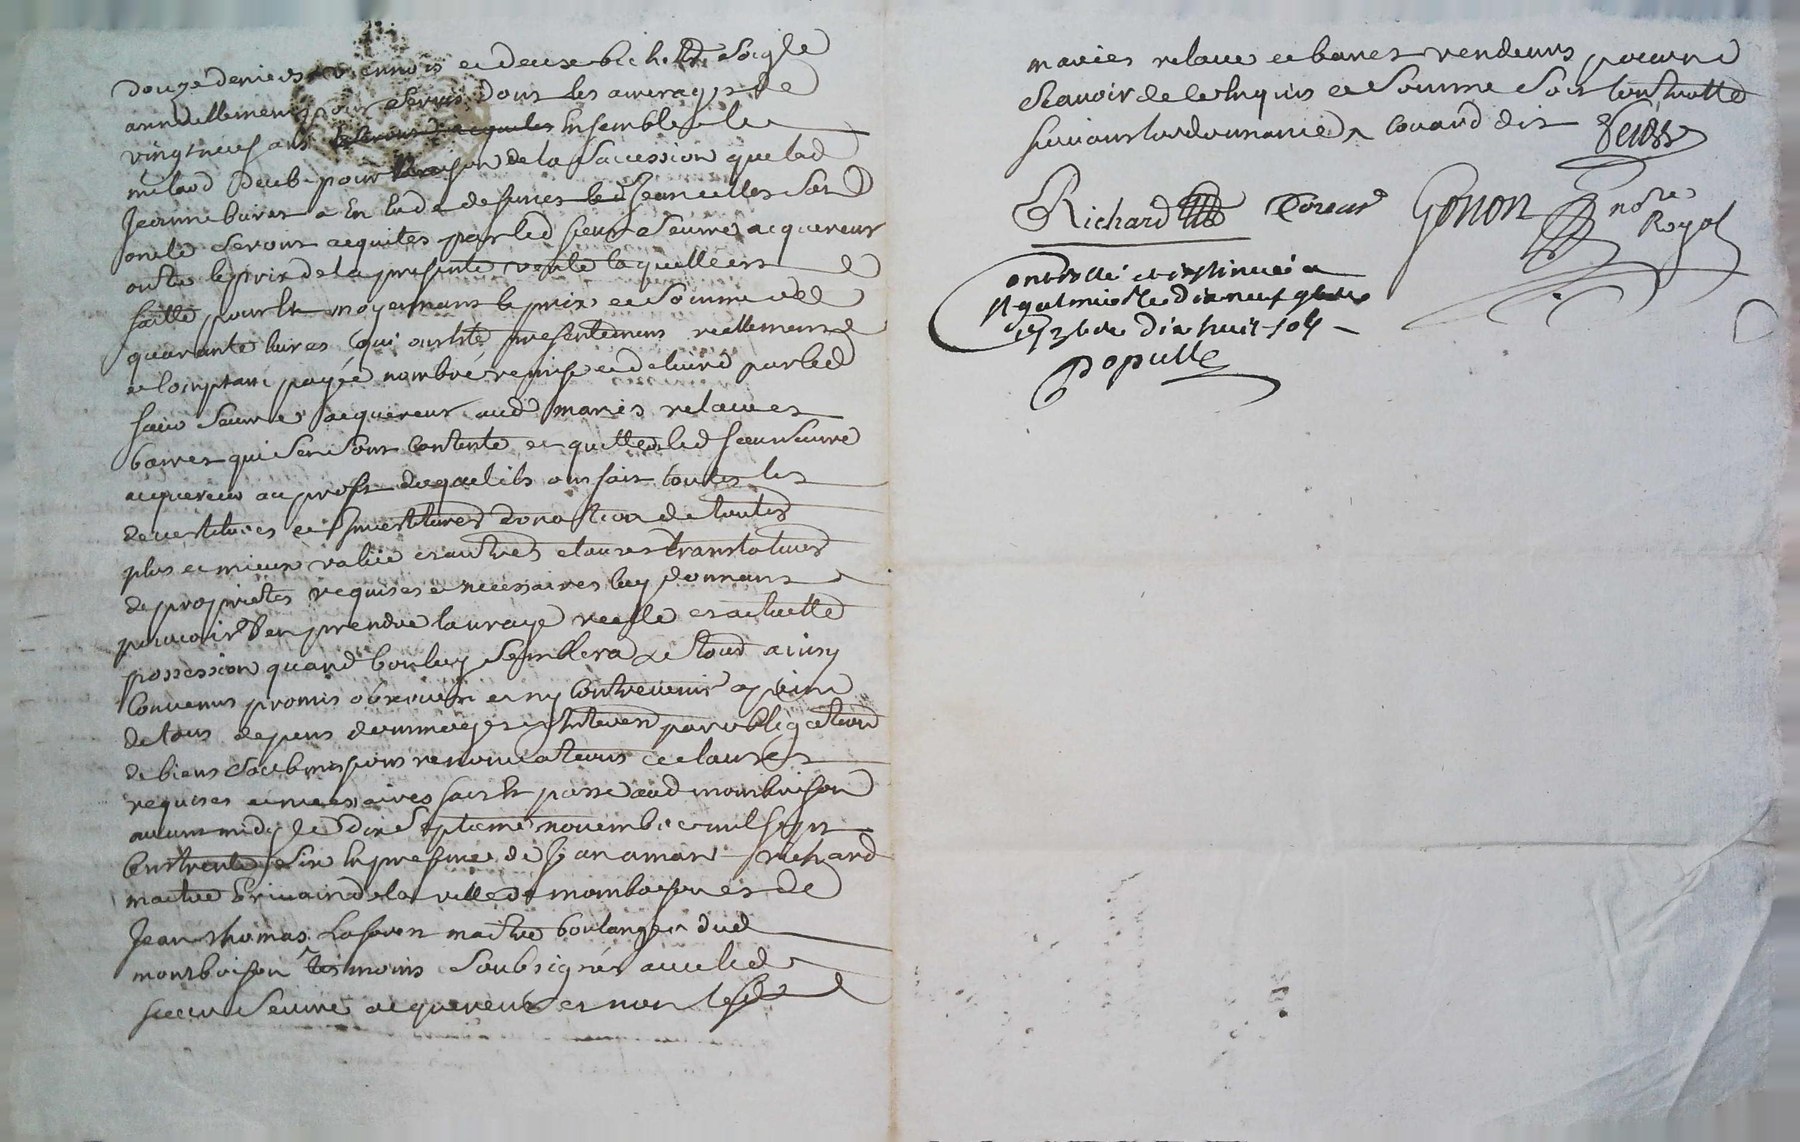 douze deniers viennois et deux bichets seigle
annuellement pour servis dont les arrerages de
vingt neuf ans ensemble le
milaod deube pour raison de la succession que lad
Jeanne banet a en lad
onte seront acquites par led sieur Seurre acquereur
outre le prix de la presente vente laquelle est
faitte pour et moyennant le prix et somme de
quarante livres qui ont esté presentement reellement
et comptant payée nombré remise et delivré par led
sieur Seurre acquereur aud mariés relave et
banet qui s'en sont contenté et quitte led sieur Seurre
acquereur au profit duquel ils ont fait toutes les
devestitures et investitures donation de toutes
plus et mieux value et autres clauses translatives
de proprietes requises et necessaires luy donnant
pouvoir d'en prendre la vraye reelle et actuelle
possession quand bon luy semblera le tout ainsy
convenus promis observer et ny contrevenir a peine
de tous depens dommages et interets par obligations
de biens soubmissions renonciations et clauses
requises et necessaires fait et passé aud montbrison
avant midy le dix septieme novembre mil sept
cent trente six en presence de Jean amant richard
maitre Ecrivain de la ville de montbrison et de
Jean thomas maitre boulanger dud
montbrison temoins soubsignés avec led
sieur Seurre acquereur et non lesd
mariés relave et banet vendeurs pour ne
scavoir de ce enquis et sommé soit controllé
suivant l'ordonnance
Richard Gonon nore
Royal
controllé et insinué a
St galmier le dix neuf 9bre
1736 Recu dix huit sols
Populle